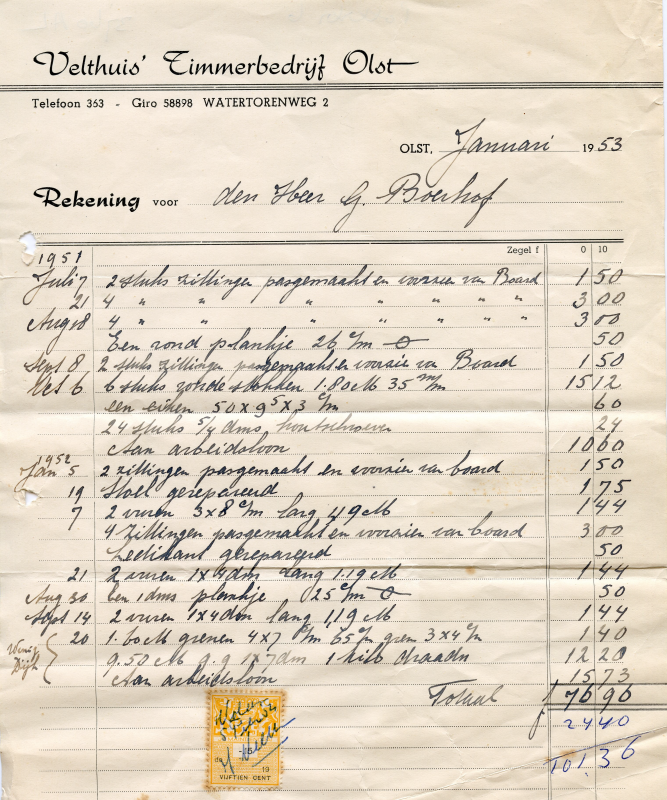 Velthuis' Timmerbedrijf Olst
Telefoon 363 - Giro 58898 WATERTORENWEG 2
OLST, Januari 1953
Rekening voor den Heer G. Boerhof
1951 Zegel f 0 10
Juli 7 2 stuks zittingen pasgemaakt en voorzien van Board 1 50
21 4 " " " " " " " 3 00
Aug 18 4 " " " " " " " 3 00
Een rond plankje 26 c/m 50
Sept 8 2 stuks zittingen pasgemaakt en voorzien van Board 1 50
Oct 6 6 stuks ronde stokken 1.80 M 35 m/m 15 12
een eiken 50 x 9⁵ x 3 c/m 60
24 stuks 5/4 dms houtschroeven 24
Aan arbeidsloon 10 60
1952
Jan 5 2 zittingen pasgemaakt en voorzien van board 1 50
19 Stoel gerepareerd 1 75
7 2 vuren 3x8 c/m lang 49 M 1 44
4 zittingen pasgemaakt en voorzien van board 3 00
Ledikant gerepareerd 50
21 2 vuren 1x4 dm lang 1.19 M 1 44
Aug 30 Een 1 dms plankje 25 c/m 50
Sept 14 2 vuren 1x4 dm lang 1,19 M 1 44
20 1.60 M grenen 4x7 c/m 65 c/m gren 3x4 c/m 1 40
9.50 M g.g 1x7 dm 1 kilo draadn 12 20
Aan arbeidsloon 15 73
Totaal f 76 96
f 24 40
101.36
-15-
de 19
VIJFTIEN CENT